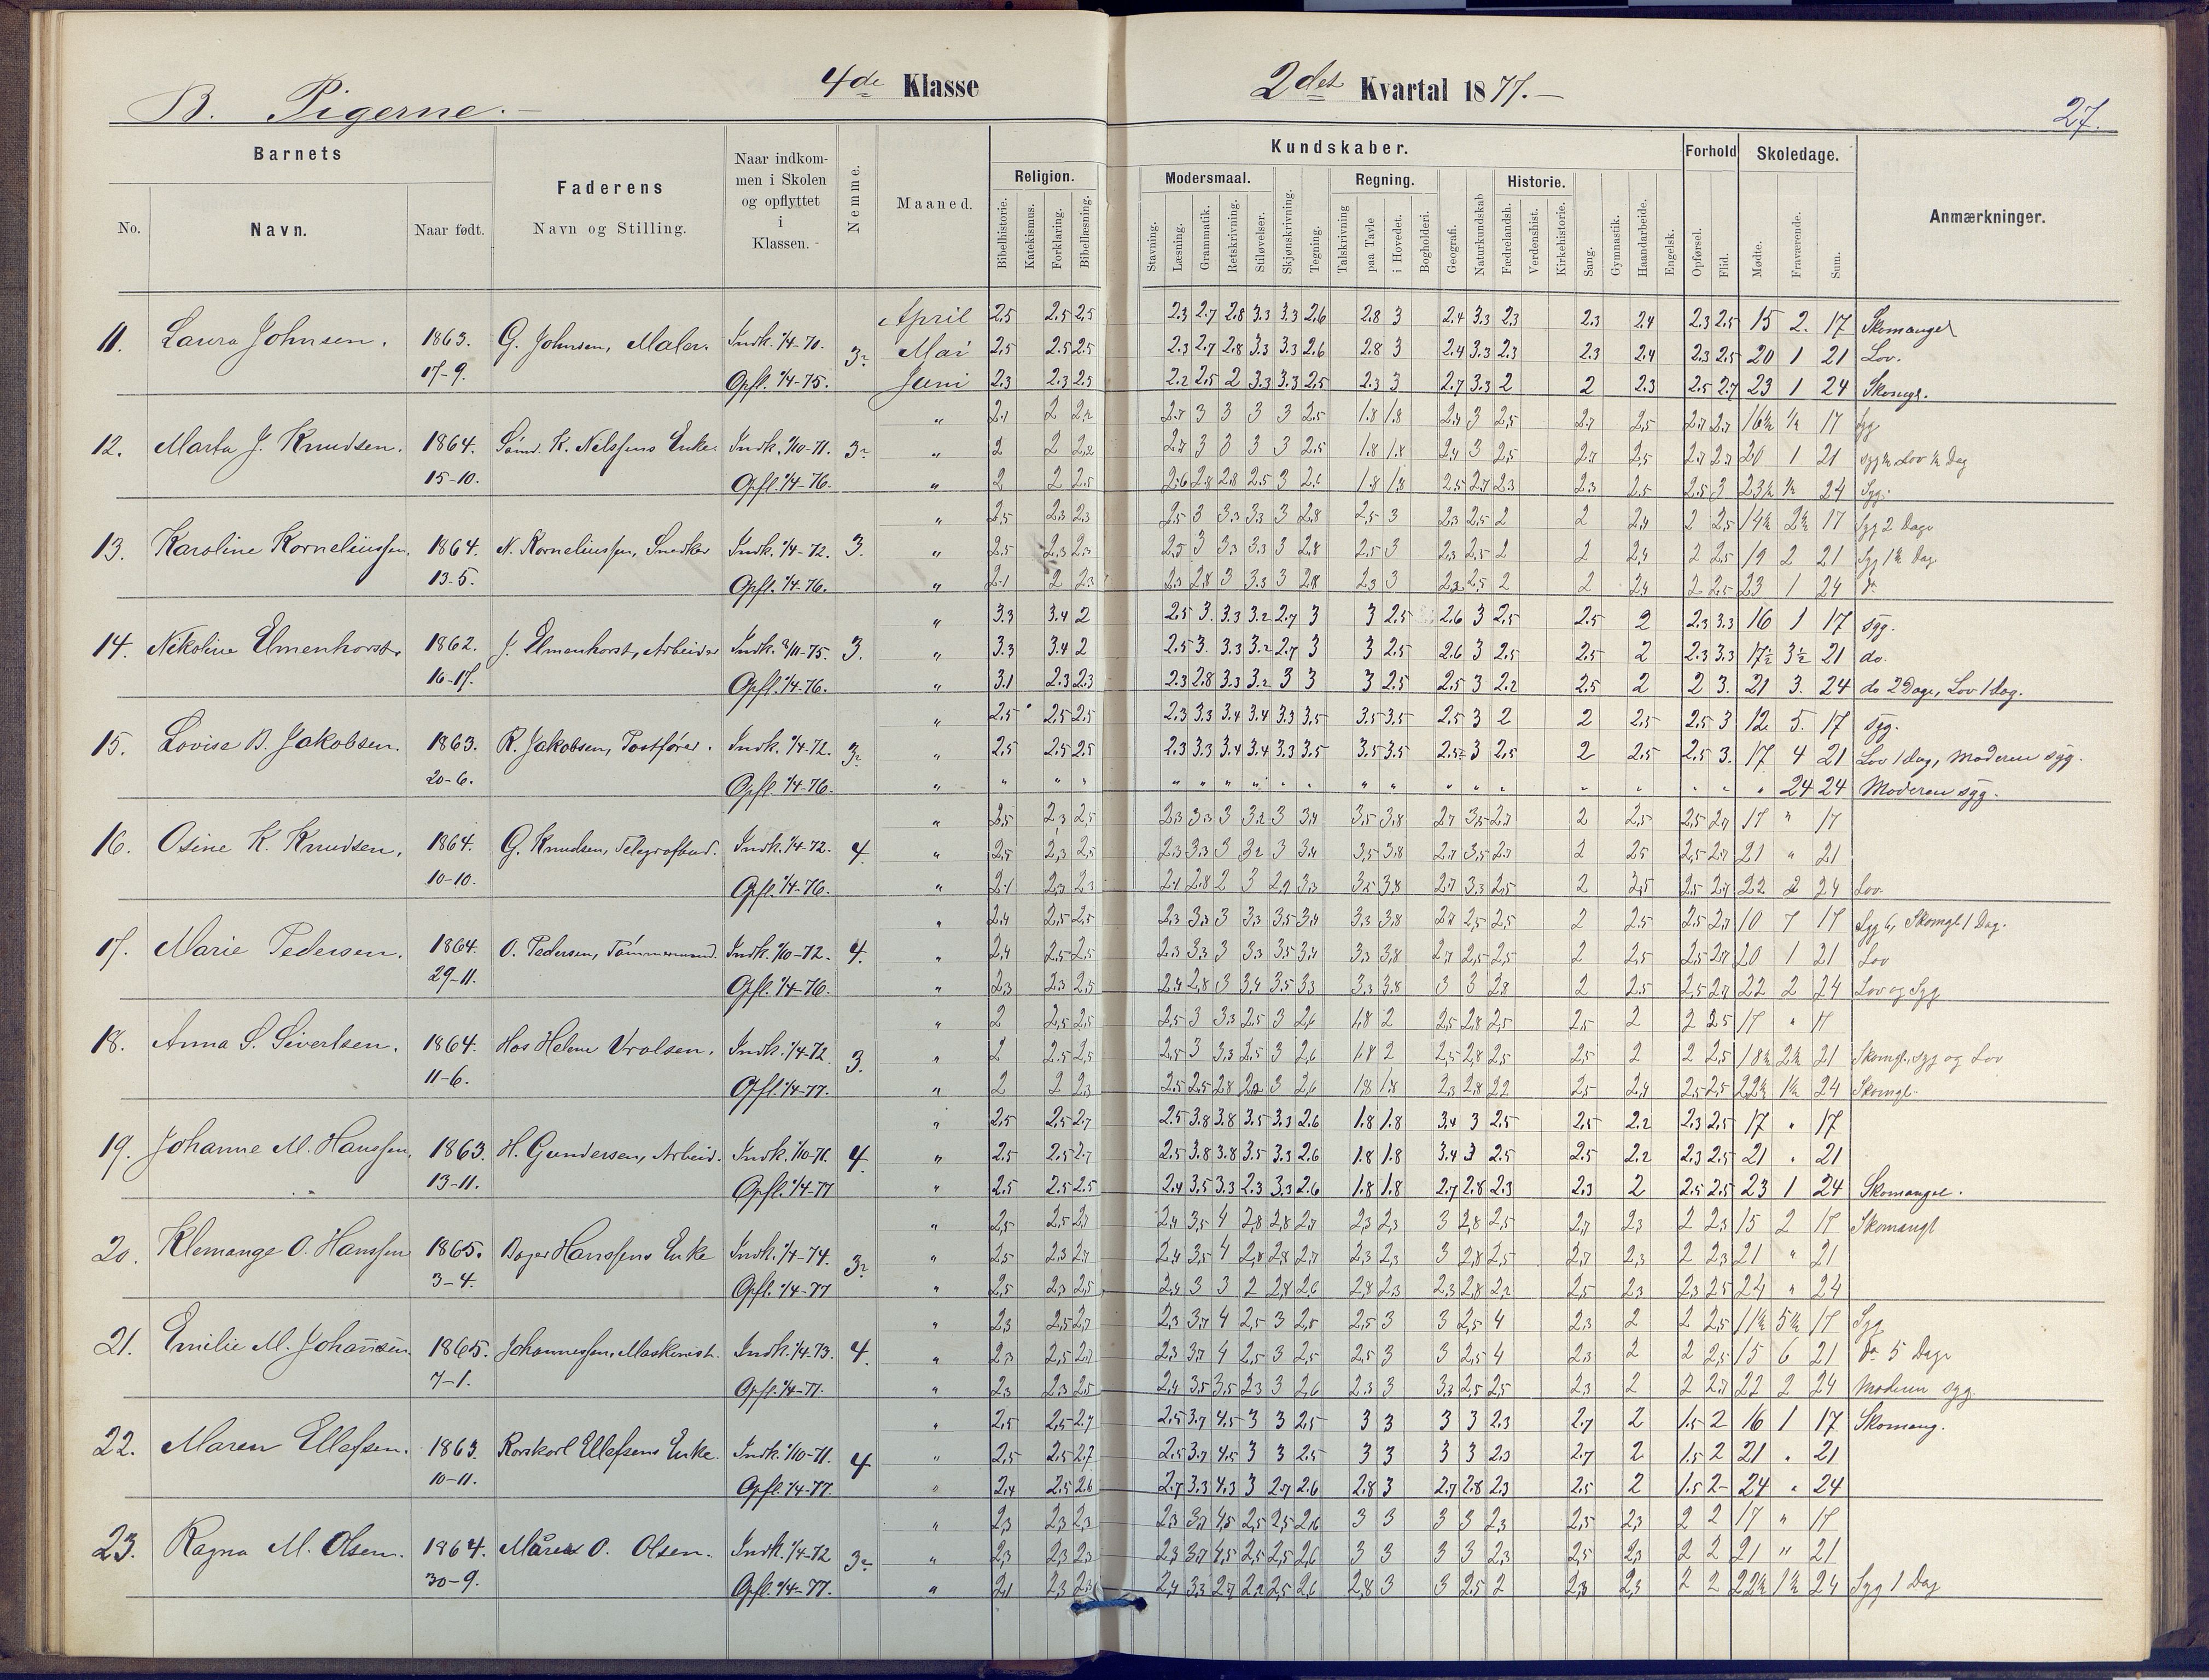 4de Klasse 2det Kvartal 1877.—
B. Pigerne.— 27.
Barnets
No. Navn. Naar født.
Faderens
Navn og Stilling.
Naar indkom-
men i Skolen
og opflyttet
i
Klassen.
Nemme.
Maaned.
Kundskaber.
Religion.
Bibelhistorie. Katekismus. Forklaring. Bibellæsning.
Modersmaal.
Stavning. Læsning. Grammatik. Retskrivning. Stiløvelser. Skjønskrivning. Tegning.
Regning.
Talskrivning paa Tavle i Hovedet. Bogholderi. Geografi. Naturkundskab
Historie.
Fædrelandsh. Verdenshist. Kirkehistorie. Sang. Gymnastik. Haandarbeide. Engelsk.
Forhold
Opførsel. Flid.
Skoledage.
Møde. Fraværende. Sum.
Anmærkninger.
April 2.5 2.5 2.5 2.3 2.7 2.8 3.3 3.3 2.6 2.8 3 2.4 3.3 2.3 2.3 2.4 2.3 2.5 15 2. 17 Skomangel
11. Laura Johnsen. 1863. G. Johnsen, Maler. Indk. 1/4-70. 3 Mai 2.5 2.5 2.5 2.3 2.7 2.8 3.3 3.3 2.6 2.8 3 2.4 3.3 2.3 2.3 2.4 2.3 2.5 20 1 21 Lov.
17-9. Opfl. 1/4-75. Juni 2.3 2.3 2.5 2.2 2.5 2 3.3 3.3 2.5 2.3 3 2.7 3.3 2 2 2.3 2.5 2.7 23 1 24 Skomgl.
" 2.1 2 2.2 2.7 3 3 3 3 2.5 1.8 1.8 2.4 3 2.5 2.7 2.5 2.7 2.7 16½ ½ 17 Syg
12. Marta J. Knudsen. 1864. Sømd. K. Nilssens Enke. Indk. 1/10-71. 3 " 2 2 2.2 2.7 3 3 3 3 2.5 1.8 1.8 2.4 3 2.5 2.7 2.5 2.7 2.7 20 1 21 syg ½ Lov ½ Dag
15-10. Opfl. 1/4-76. " 2 2 2.5 2.6 2.8 2.8 2.5 3 2.6 1.8 1.8 2.5 2.7 2.3 2.3 2.5 2.5 3 23½ ½ 24 Syg.
" 2.5 2.3 2.3 2.5 3 3.3 3.3 3 2.8 2.5 3 2.3 2.5 2 2 2.4 2 2.5 14½ 2½ 17 Syg 2 Dage
13. Karoline Korneliussen. 1864. N. Korneliussen, Snedker Indk. 1/4-72. 3. " 2.5 2.3 2.3 2.5 3 3.3 3.3 3 2.8 2.5 3 2.3 2.5 2 2 2.4 2 2.5 19 2 21 Syg 1½ Dag
13-5. Opfl. 1/4-76. " 2.1 2 2.3 2.3 2.8 3 3.3 3 2.8 2.3 3 2.3 2.5 2 2 2.4 2 2.5 23 1 24 do
" 3.3 3.4 2 2.5 3. 3.3 3.2 2.7 3 3 2.5 2.6 3 2.5 2.5 2 2.3 3.3 16 1 17 syg.
14. Nikoline Elmenhorst. 1862. J. Elmenhorst, Arbeider Indk. 8/11-75. 3. " 3.3 3.4 2 2.5 3. 3.3 3.2 2.7 3 3 2.5 2.6 3 2.5 2.5 2 2.3 3.3 17½ 3½ 21 do.
16-17. Opfl. 1/4-76. " 3.1 2.3 2.3 2.3 2.8 3.3 3.2 3 3 3 2.5 2.5 3 2.2 2.5 2 2 3. 21 3. 24 do 2 Dage, Lov 1 Dag.
" 2.5 2.5 2.5 2.3 3.3 3.4 3.4 3.3 3.5 3.5 3.5 2.5 3 2 2 2.5 2.5 3 12 5. 17 syg.
15. Lovise B. Jakobsen. 1863. R. Jakobsen, Postfører. Indk. 1/4-72. 3 " 2.5 2.5 2.5 2.3 3.3 3.4 3.4 3.3 3.5 3.5 3.5 2.5 3 2.5 2 2.5 2.5 3. 17 4 21 Lov 1 dag, Moderen syg.
20-6. Opfl. 1/4-76. " " " " " " " " " " " " " " " " " " " " 24 24 Moderen syg.
" 2.5 2.3 2.5 2.3 3.3 3 3.2 3 3.4 3.5 3.8 2.7 3.5 2.7 2 2.5 2.5 2.7 17 " 17
16. Osine K. Knudsen. 1864. G. Knudsen, Telegrafbud. Indk. 1/4-72. 4 " 2.5 2.3 2.5 2.3 3.3 3 3.2 3 3.4 3.5 3.8 2.7 3.5 2.7 2 2.5 2.5 2.7 21 " 21
10-10. Opfl. 1/4-76. " 2.1 2.3 2.3 2.1 2.8 2 3 2.9 3.3 3.5 3.8 2.7 3.3 2.5 2 2.5 2.5 2.7 22 2 24 Lov
" 2.4 2.5 2.5 2.3 3.3 3 3.3 3.5 3.4 3.3 3.8 2.7 2.5 2.5 2 2.5 2.5 2.7 10 7 17 Syg 6, Skomgl 1 Dag.
17. Marie Pedersen. 1864. O. Pedersen, Tømmermand. Indk. 1/10-72. 4. " 2.4 2.5 2.5 2.3 3.3 3 3.3 3.5 3.4 3.3 3.8 2.7 2.5 2.5 2 2.5 2.5 2.7 20 1 21 Lov
29-11. Opfl. 1/4-76. " 2.3 2.3 2.5 2.4 2.8 3 3.4 3.5 3.3 3.3 3.8 3 3 2.8 2 2.5 2.5 2.7 22 2 24 Lov og Syg
" 2 2.5 2.5 2.5 3 3.3 2.5 3 2.6 1.8 2 2.5 2.8 2.5 2.5 2 2 2.5 17 " 17
18. Anna S. Sivertsen. 1864. Hos Helene Vrolsen. Indk. 1/4-72 3. " 2 2.5 2.5 2.5 3 3.3 2.5 3 2.6 1.8 2 2.5 2.8 2.5 2.5 2 2 2.5 18½ 2½ 21 Skomgl., syg og Lov
11-6. Opfl. 1/4-77. " 2 2 2.3 2.5 2.5 2.8 2.2 3 2.6 1.8 1.8 2.3 2.8 2.2 2.5 2.4 2.5 2.5 22½ 1½ 24 Skomgl.
" 2.5 2.5 2.7 2.5 3.8 3.8 3.5 3.3 2.6 1.8 1.8 3.4 3 2.5 2.5 2.2 2.3 2.5 17 " 17
19. Johanne M. Hanssen. 1863. H. Gundersen, Arbeid. Indk. 1/10-71. 4. " 2.5 2.5 2.7 2.5 3.8 3.8 3.5 3.3 2.6 1.8 1.8 3.4 3 2.5 2.5 2.2 2.3 2.5 21 " 21
13-11. Opfl. 1/4-77 " 2.5 2.5 2.5 2.4 3.5 3.3 2.3 3.3 2.6 1.8 1.8 2.7 2.8 2.3 2.3 2 2.5 2.5 23 1 24 Skomangel.
" 2.5 2.5 2.7 2.4 3.5 4 2.8 2.8 2.7 2.3 2.3 3 2.8 2.5 2.7 2.3 2 2.3 15 2 17 Skomangl
20. Klemange O. Hanssen 1865. Hanssens Enke Indk. 1/4-74. 3 " 2.5 2.3 2.7 2.4 3.5 4 2.8 2.8 2.7 2.3 2.3 3 2.8 2.5 2.7 2.3 2 2.3 21 " 21
3-4. Opfl. 1/4-77 " 2.5 2.3 2.5 2.4 3 3 2 2.8 2.6 2.8 2.3 2.3 2.8 2.2 2.5 2.3 2.3 2.5 24 " 24
" 2.3 2.5 2.7 2.3 3.7 4 2.5 3 2.5 2.5 3 3 2.5 4 2.3 2 2 2.5 11½ 5½ 17 Syg
21. Emilie M. Johansen. 1865. Johannessen, Maskinist. Indk. 1/4-73. 4. " 2.3 2.5 2.7 2.3 3.7 4 2.5 3 2.5 2.5 3 3 2.5 4 2.3 2 2 2.5 15 6 21 do 5 Dage
7-1. Opfl. 1/4-77. " 2.3 2.3 2.5 2.4 3.5 3.5 2.3 3 2.6 2.3 3 3.3 2.5 2.5 2.3 2 2 2.7 22 2 24 Moderen syg.
" 2.5 2.5 2.7 2.5 3.7 4.5 3 3 2.5 3 3 3 3 2.3 2.7 2 1.5 2 16 1 17 Skomang.
22. Maren Ellefsen. 1863. Korskarl Ellefsens Enke. Indk. 1/10-71. 4 " 2.5 2.5 2.7 2.5 3.7 4.5 3 3 2.5 3 3 3 3 2.3 2.7 2 1.5 2 21 " 21
10-11. Opfl. 1/4-77. " 2.4 2.5 2.6 2.7 3.3 4.3 3 2.7 2.6 2.8 3 2.7 2.8 2.3 2.5 2 1.5 2- 24 " 24
" 2.3 2.3 2.3 2.3 3.7 4.5 2.5 2.5 2.6 3 3 3 3 2.3 2.5 2.3 2 2 17 " 17
23. Ragna M. Olsen. 1864. O. Olsen. Indk. 1/4-72 3 " 2.3 2.3 2.3 2.3 3.7 4.5 2.5 2.5 2.6 3 3 3 3 2.3 2.5 2.3 2 2 21 " 21
30-9. Opfl. 1/4-77. " 2.1 2.3 2.3 2.4 3.3 2.7 2.2 2.5 2.6 2.8 3 3 2.5 2 2.3 2.3 2 2 22½ 1½ 24 Syg 1 Dag